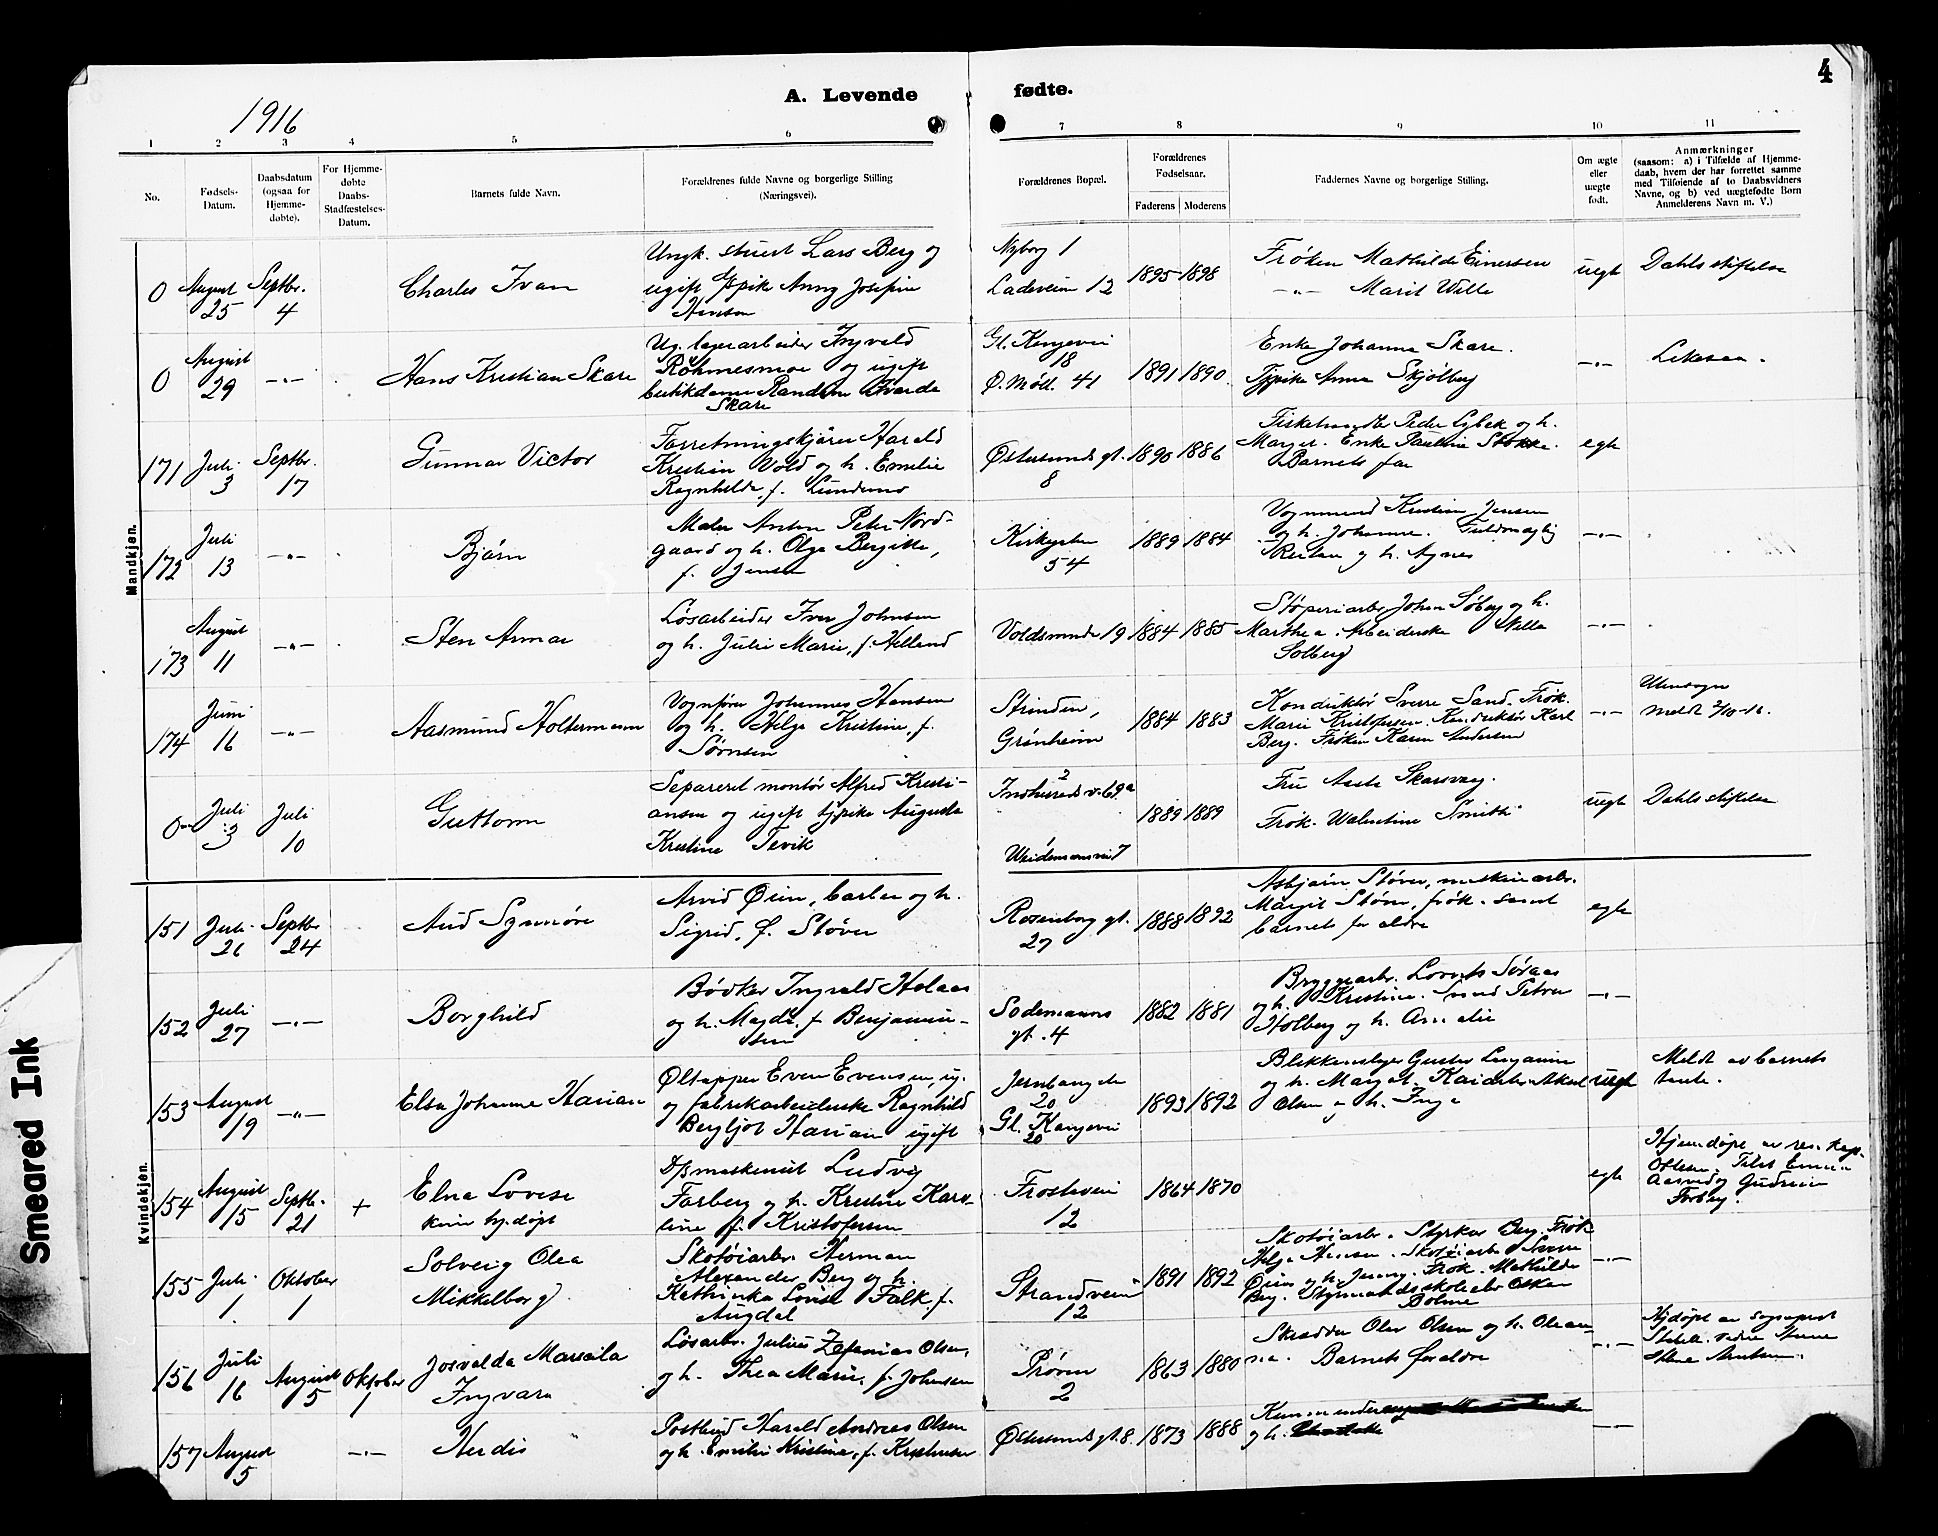 4
1916
A. Levende fødte.
1 2 3 4 5 6 7 8 9 10 11
No.
Fødsels-
Datum.
Daabsdatum
(ogsaa for
Hjemme-
døbte).
For Hjemme-
døbte
Daabs-
Stadfæstelses-
Datum.
Barnets fulde Navn.
Forældrenes fulde Navne og borgerlige Stilling
(Næringsvei).
Forældrenes Bopæl.
Forældrenes
Fødselsaar.
Faderens
Moderens
Faddernes Navne og borgerlige Stilling.
Om ægte
eller
uægte
født.
Anmærkninger
(saasom: a) i Tilfælde af Hjemme-
daab, hvem der har forrettet samme
med Tilføiende af to Daabsvidners
Navne, og b) ved uægtefødte Børn
Anmelderens Navn m. V.)
Mandkjøn.
0
August
25
Septbr.
4
Charles Ivan
Ungk. stuert Lars Berg og
ugift tjpike Anny Josefine
Nyborg 1
Ladeveien 12
1895
1898
Frøken Mathilde Einersen
-"- Marit Wille
uegt
Dahls stiftelse
0
August
29
-"-
Hans Kristian Skare
Ug. lagerarbeider Ingvald
og ugift
butikdame
Skare
18
Ø. Møll. 41
1891
1890
Enke Johanna Skare.
Tjpike Anna Skjølberg
-"-
171
Juli
3
Septbr.
17
Gunnar Victor
Forretningskjører Harald
Kristian Vold og h. Emelie
Ragnhilda, f. Lundemo
Østersunds gt.
8
1890
1886
Peder Lybek og h.
Marget. Enke Pauline Stokke.
Barnets far
egte
172
Juli
13
-"-
Bjørn
Maler Anton Peter Nord-
gaard og h. Olga Bergitte,
f. Jensen
Kirkegaten
54
1889
1884
Vognmand Kristian Jensen
og h. Johanna. Fuldmægtig
og h. Agnes
-"-
173
August
11
-"-
Sten Armar
Løsarbeider Iver Johnsen
og h. Julie Marie, f. Helland
Voldsminde 19
1884
1885
Støperiarb. Johan Søberg og h.
Marthea. Arbeiderske
Solberg
-"-
174
Juni
16
-"-
Aasmund Holtermann
Vognfører Johannes Hansen
og h. Helga Kristine, f.
Sørnsen
Strinden,
Grønheim
1884
1883
Konduktør Sverre Sand. Frøk.
Marie Kristofersen. Konduktør Karl
Berg. Frøken Karen Andersen
-"-
Utensogn
meldt 2/10-16.
0
Juli
3
Juli
10
Guttorm
Separeret montør Alfred Kristi-
ansen og ugift tjpike Augusta
Kristine Tevik
Indherreds v. 69a
Weidemannsvei 7
1889
1889
Fru Skarsvaag.
Frøk. Walentine Smith
uegt
Dahls stiftelse
Kvindekjøn.
151
Juli
26
Septbr
24
Aud Synnøve
Arvid Øien, barber og h.
Sigrid, f. Støver
Rosenborg gt.
27
1888
1892
Asbjørn Støver, maskinarb.
Margit Støver, frøk. samt
barnets foraldre
egte
152
Juli
27
-"-
Borghild
Bødker Ingvald Holaas
og h. Magda f. Benjamin-
sen
Sodemanns
gt. 4
1882
1881
Bryggearb. Lorents Søraas
og h. Kristine. Smed Petter
Holberg og h. Amalie
-"-
153
August
19
-"-
Elsa Johanne Harian
Øltapper Even Evensen, ug.
og fabrikarbeiderske Ragnhild
Bergljot Harian ugift
Jernbangdn
20
Gl. Kongevei
20
1893
1892
Blikkenslager Gustav Benjamin
og h. Margot.
Olsen og h. Inga
uegt
Meldt av barnets
tante.
154
August
15
Septb.
21
+
Elna Lovise
kun hj.døpt
D/S maskinist Ludvig
Forberg og h. Kristine Karo-
line f. Kristofersen
Frostaveien
12
1864
1870
egte
Hjemdøpt av res. kap.
Forberg.
155
Juli
1
Oktober
1
Solveig Olea
Mikkelborg
Skotøiarb. Herman
Alexander Berg og h.
Kathinka Lovise Falk, f.
Augdal
Strandveien
12
1891
1892
Skotøiarb. Styrkar Berg. Frøk.
Helga Hansen. Skotøiarb. Sverre
Øien og h. Jenny. Frøk. Mathilde
Berg. Styrmandsskoleelev Oskar
Bolme
-"-
156
Juli
16
August
5
Oktober
1
Josvalda Marsila
Ingvara
Løsarb. Julius Zefanias Olsen
og h. Thea Marie, f. Johnsen
Prøven
2
1863
1880
Skrædder Olav Olsen og h. Olean-
na. Barnets foraldre
-"-
157
August
5
-"-
Herdis
Postbud Harald Andreas Olsen
og h. Emilie Kristine, f. Kristensen
Østersunds gt. 8.
1873
1888
og h.
-"-
Smeared Ink